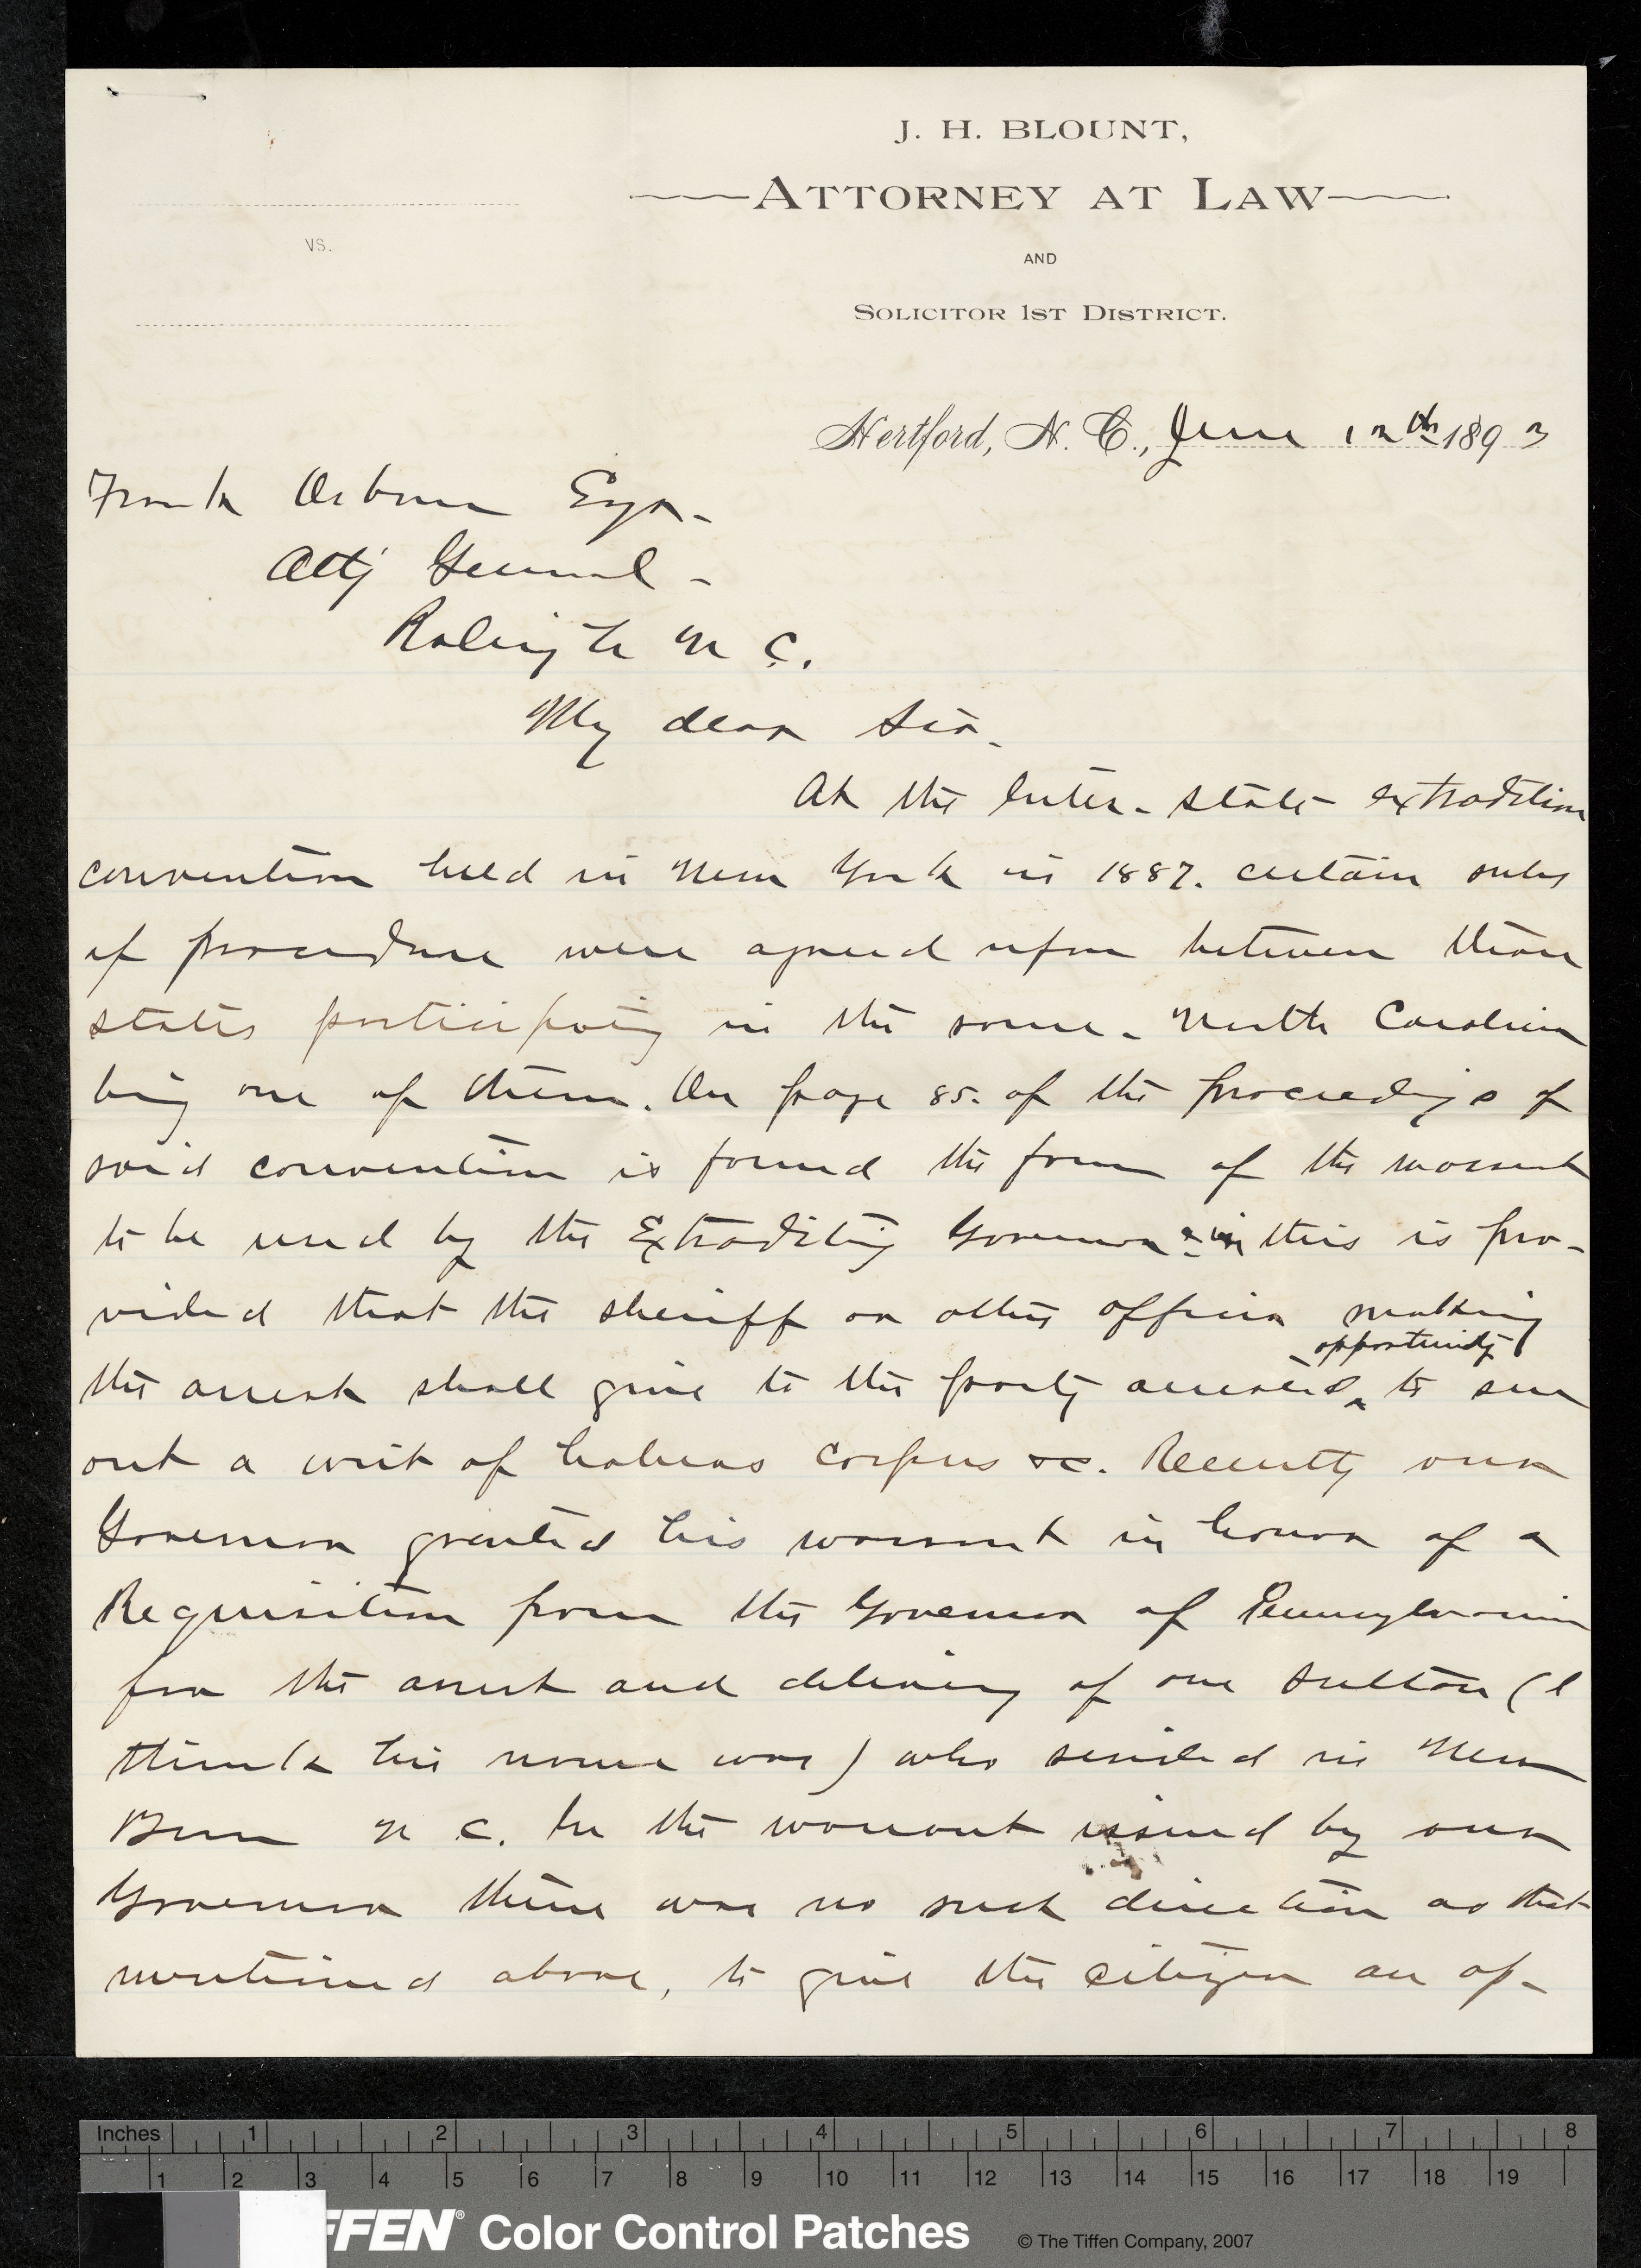 J. H. BLOUNT,
ATTORNEY AT LAW
VS.
AND
SOLICITOR 1ST DISTRICT.
Hertford, N. C., June 12th 1893
Frank Osborne Esqr.
Atty General -
Raleigh N C.
My dear Sir.
At the Inter-state extradition
convention held in New York in 1887. certain rules
of procedure were agreed upon between those
states participating in the same - North Carolina
being one of them. On page 85. of the proceedings of
said convention is found the form of the warrant
to be used by the Extraditing Governor - in this is pro-
vided that the sheriff or other officer making
opportunity
the arrest shall give to the party accused to sue
out a writ of habeas corpus &c. Recently our
Governor granted his warrant in honor of a
Requisition from the Governor of Pennsylvania
for the arrest and delivery of one Sultan (I
think his name was) who resided in New
Bern N C. In the warrant issued by our
Governor there was no such direction as that
mentioned above, to give the citizen an op-
Inches 1 2 3 4 5 6 7 8
1 2 3 4 5 6 7 8 9 10 11 12 13 14 15 16 17 18 19
FFEN® Color Control Patches © The Tiffen Company, 2007